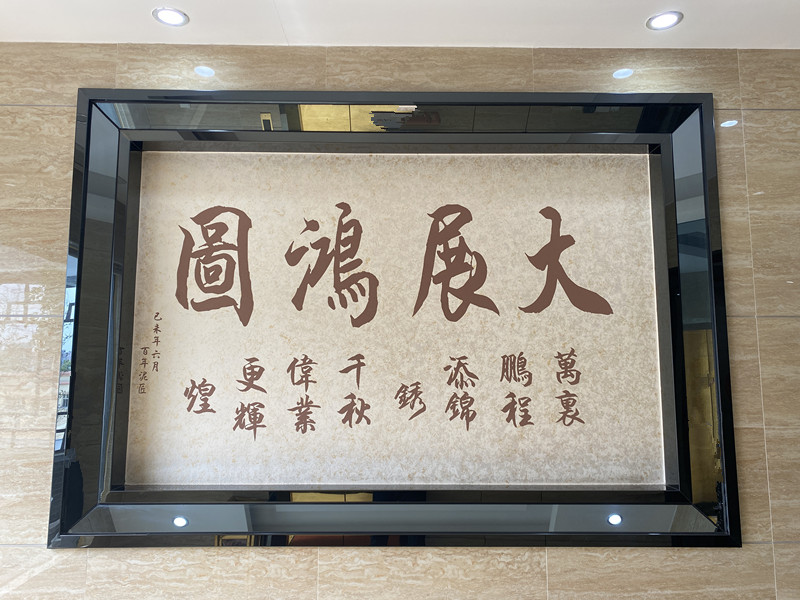 大展鴻圖
萬裏
鵬程
添錦
銹
千秋
偉業
更輝
煌
己未年六月
百年泥匠